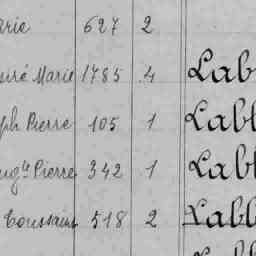 rie 627 2
siré Marie 1785 4 Lab
ph Pierre 105 1 Labl
ug^te Pierre 342 1 Labl
Toussaint 518 2 Labl